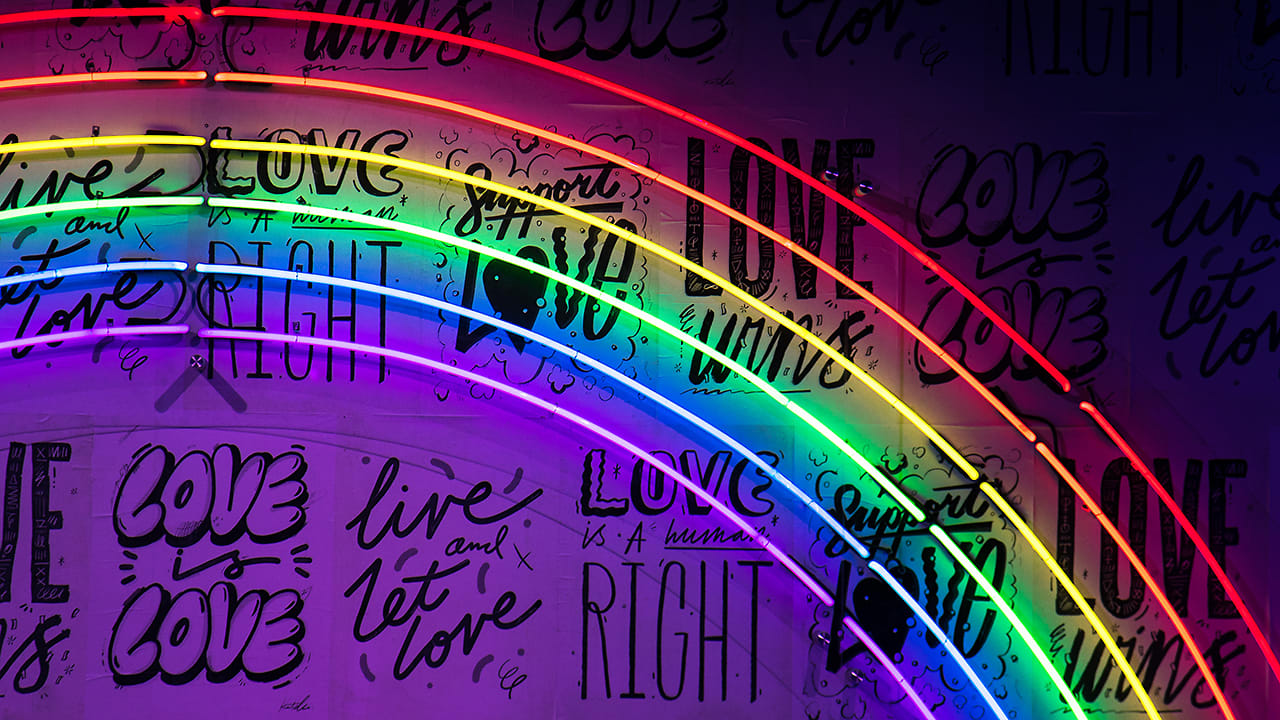 wins
LOVE
love
RIGHT
live
and
let
love
LOVE
is A human
RIGHT
Support
LOVE
LOVE
wins
LOVE
is
LOVE
live
let
LOVE
is
LOVE
live
and
let
love
LOVE
is A human
RIGHT
Support
LOVE
LOVE
wins